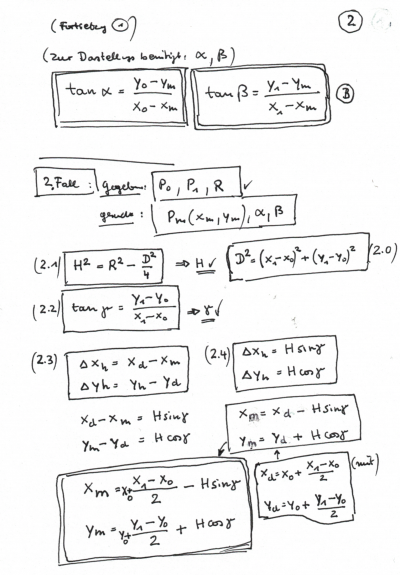 (Fortsetzung ①) ②
(Zur Darstellung benötigt: α, β)
tan α = (y₀ − yₘ)/(x₀ − xₘ) tan β = (y₁ − yₘ)/(x₁ − xₘ) Ⓑ
2. Fall: gegeben: P₀, P₁, R ✓
gesucht: Pₘ(xₘ, yₘ), α, β
(2.1) H² = R² − D²/4 ⇒ H ✓ D² = (x₁−x₀)² + (y₁−y₀)² (2.0)
(2.2) tan γ = (y₁−y₀)/(x₁−x₀) ⇒ γ ✓
(2.3) Δxₕ = x_d − xₘ (2.4) Δxₕ = H sin γ
Δyₕ = yₕ − y_d Δyₕ = H cos γ
x_d − xₘ = H sin γ xₘ = x_d − H sin γ
yₘ − y_d = H cos γ yₘ = y_d + H cos γ
xₘ = x₀ + (x₁ − x₀)/2 − H sin γ x_d = x₀ + (x₁−x₀)/2 (mit)
yₘ = y₀ + (y₁ − y₀)/2 + H cos γ y_d = y₀ + (y₁−y₀)/2